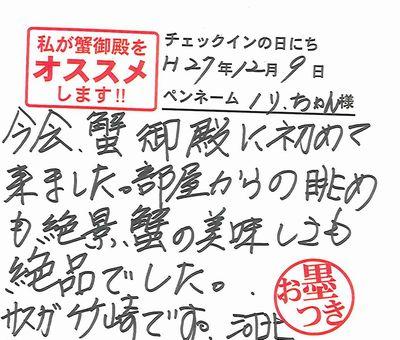 私が蟹御殿を
オススメ
します!!
チェックインの日にち
H27年12月9日
ペンネーム ノリ.ちゃん様
今会、蟹御殿に初めて
来ました。部屋からの眺め
も絶景、蟹の美味しさも
絶品でした。
サスガ竹崎です。河北
お墨つき